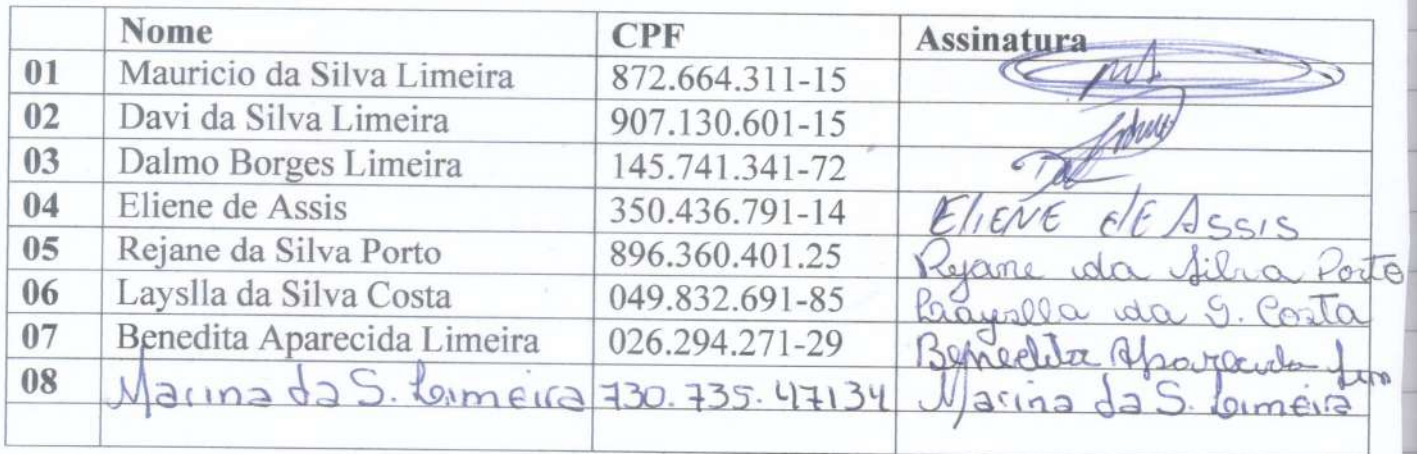 Nome CPF Assinatura
01 Mauricio da Silva Limeira 872.664.311-15
02 Davi da Silva Limeira 907.130.601-15
03 Dalmo Borges Limeira 145.741.341-72
04 Eliene de Assis 350.436.791-14 EliENE dE Assis
05 Rejane da Silva Porto 896.360.401.25 Rejane da Silva Porto
06 Layslla da Silva Costa 049.832.691-85 da S. Costa
07 Benedita Aparecida Limeira 026.294.271-29 Benedita Aparecida
08 Marina da S. Limeira 730.735.47134 Marina da S. Limeira